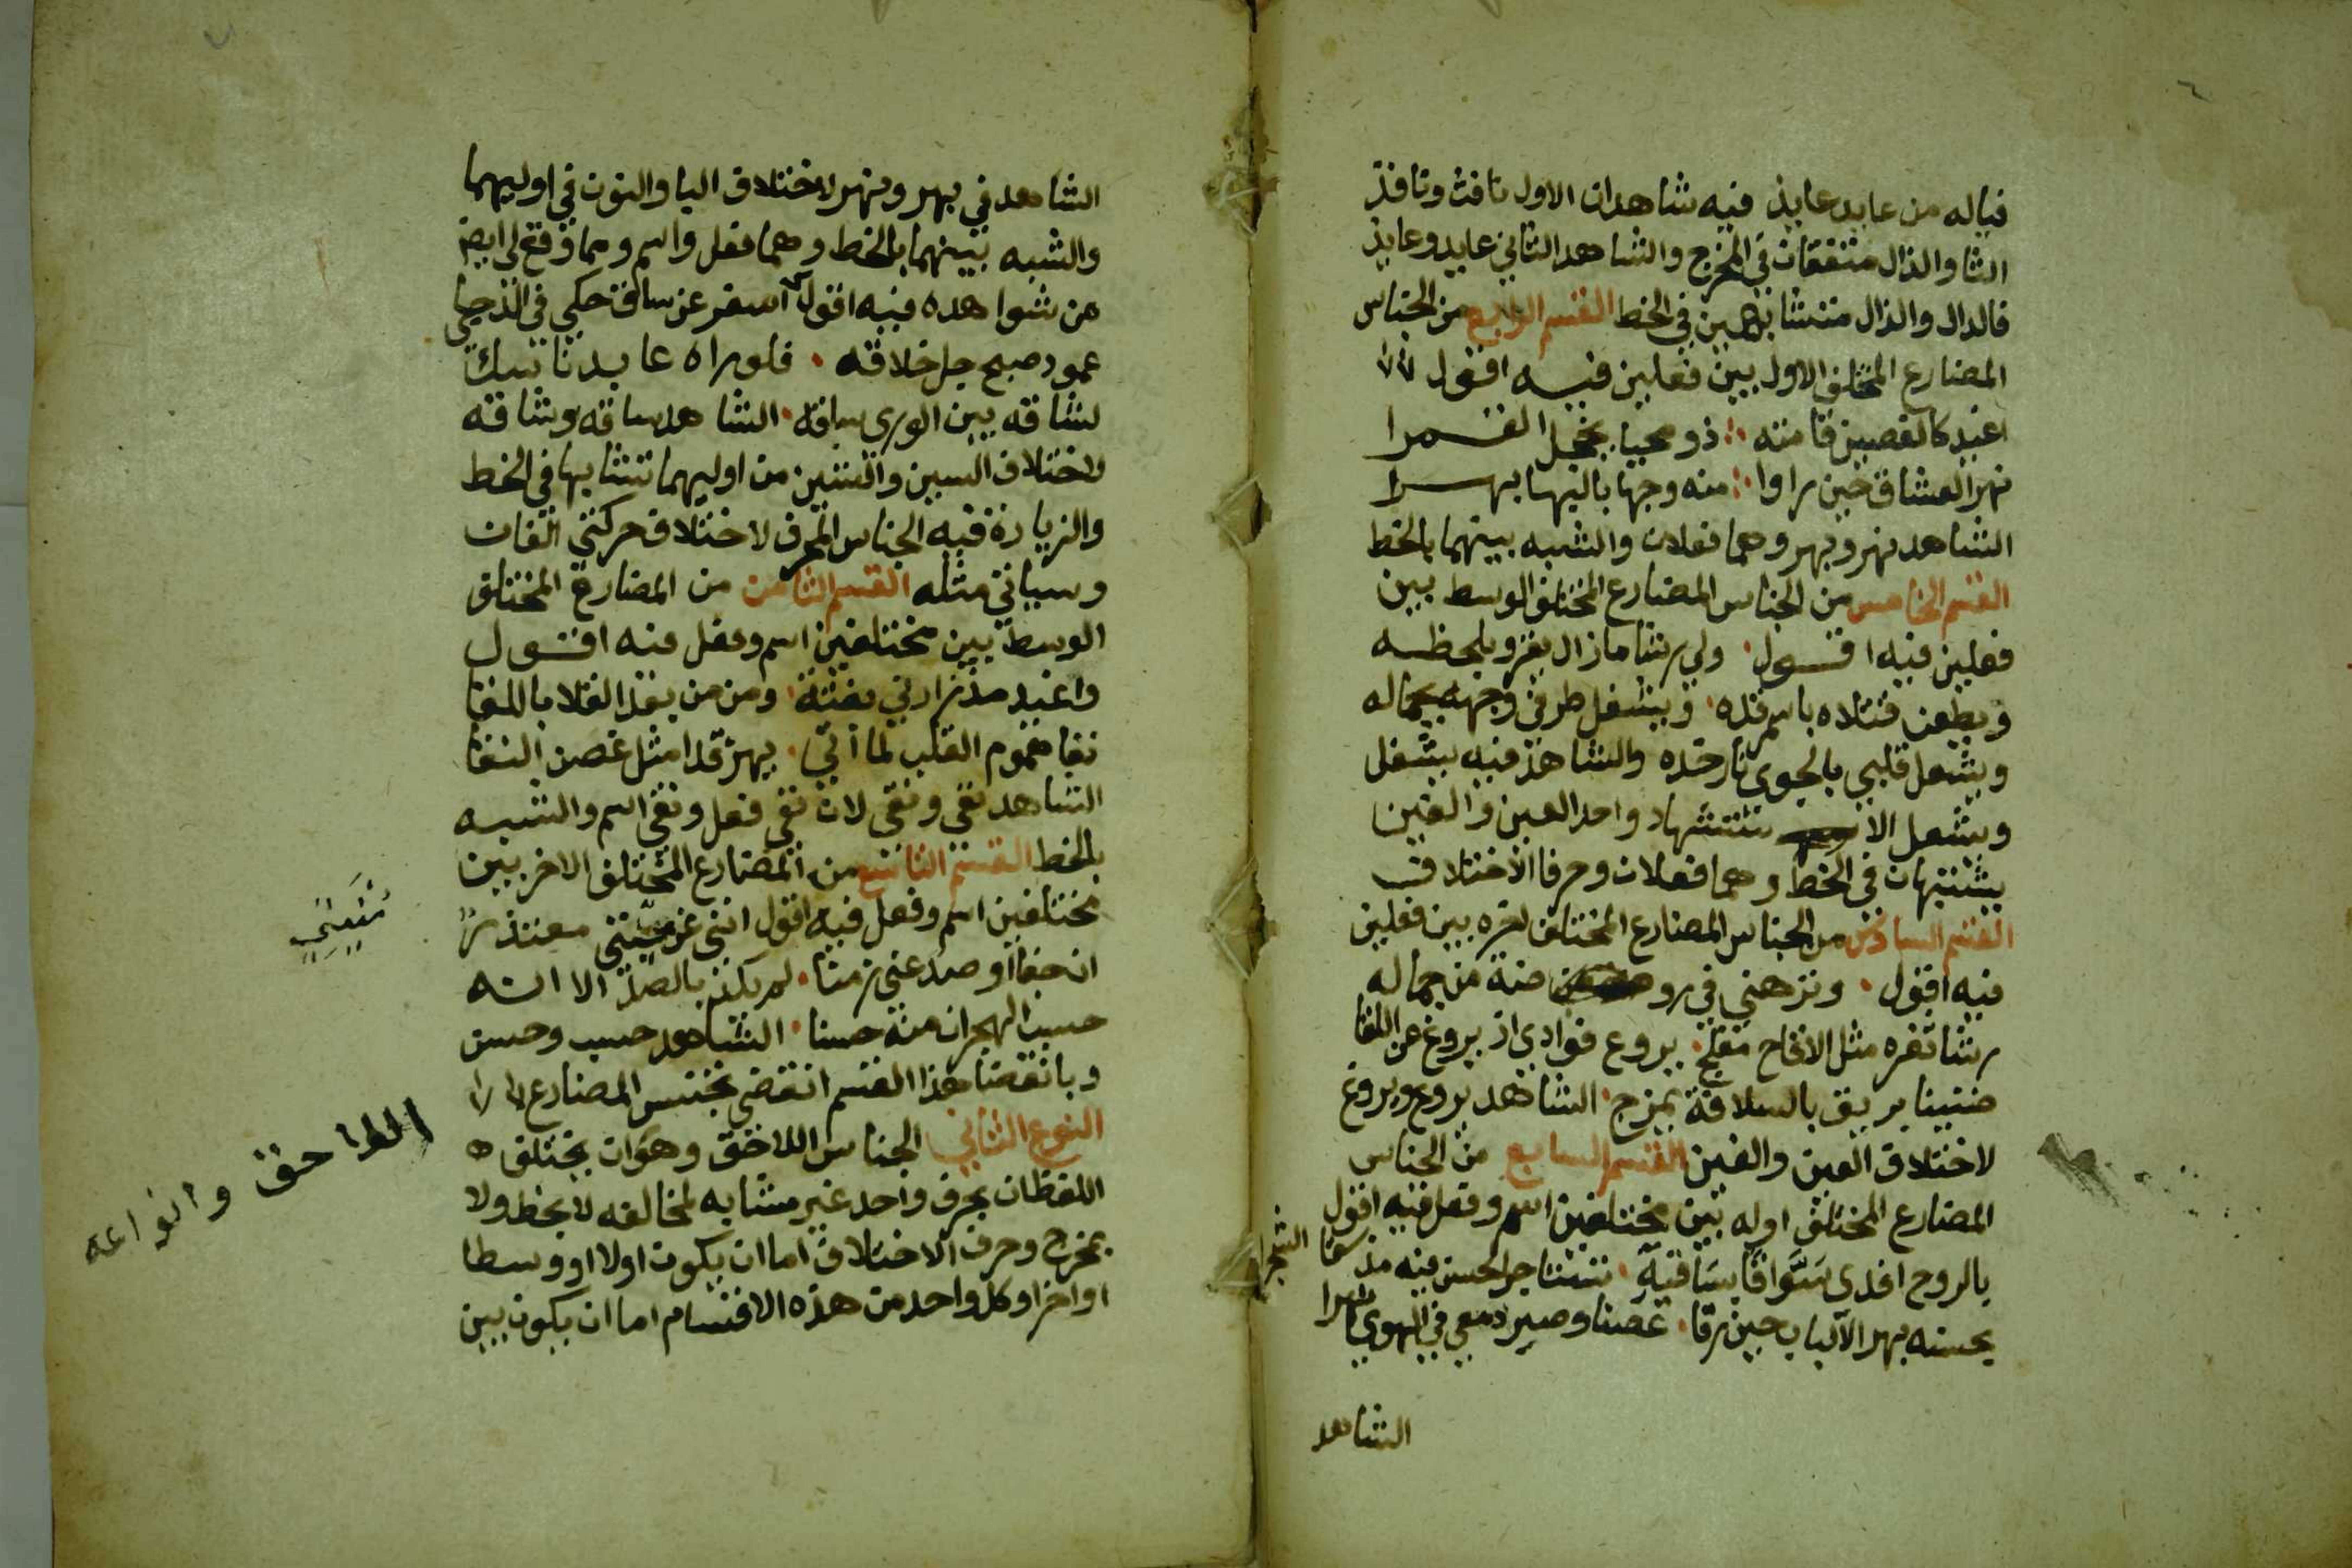 فياله من عابد عايذ فيه شاهدان الاول نافث ونافذ
الثا والذال متفقان في المخرج والشاهد الثاني عابد وعايذ
فالدال والذال متشابهين في الخط القسم الرابع من الجناس
المضارع المختلف الاول بين فعلين فيه اقول
اغيد كالغصين قامته ذو محيا يخجل القمرا
نهر العشاق حين راوا منه وجها باليها بهرا
الشاهد نهر وبهر وهما فعلان والشبه بينهما بالخط
القسم الخامس من الجناس المضارع المختلف الوسط بين
فعلين فيه اقول ولي رشا مازال يغزو بلحظه
ويطعن قتلاه باسمر قده ويشغل طرفي وجهه بجماله
ويشعل قلبي بالجوى نار خده والشاهد فيه يشغل
ويشعل الا ستشهاد واحد العين والغين
يشتبهان في الخط وهما فعلان وحرفا الاختلاف
القسم السادس من الجناس المضارع المختلف اخره بين فعلين
فيه اقول ونزهني في رو ضة من جماله
رشا ثغره مثل الاقاح مفلج يروع فوادي اذ يروغ عن اللقا
ضنينا بريق بالسلافة يمزج الشاهد يروع ويروغ
لاختلاف العين والغين القسم السابع من الجناس
المضارع المختلف اوله بين مختلفين اسم وفعل فيه اقول
بالروح افدي سواقا بساقية تشاجر الحسن فيه مذ سقا الشجرا
بحسنه بهر الالباب حين رقا غصنا وصير دمعي في الهوى نهرا
الشاهد
الشاهد في بهر ونهر لاختلاف اليا والنون في اوليهما
والشبه بينهما بالخط وهما فعل واسم ومما وقع لي ايضا
من شواهده فيه اقول اسفر عن ساق حكى في الدجى
عمود صبح جل خلاقه فلو راه عابد ناسك
لشاقه بين الورى ساقه الشاهد ساقه وشاقه
لاختلاف السين والشين من اوليهما تشابها في الخط
والزيادة فيه الجناس المحرف لاختلاف حركتي القاف
وسياتي مثله القسم الثامن من المضارع المختلف
الوسط بين مختلفين اسم وفعل فيه اقول
واغيد مذ زارني بغتة ومن من بعد القلا باللقا
نفا هموم القلب لما اتى يهز قدا مثل غصن النقا
الشاهد نفى ونقى لان نفى فعل ونقى اسم والشبه
بالخط القسم التاسع من المضارع المختلف الاخر بين
مختلفين اسم وفعل فيه اقول انثى عن منيتي معتذرا
ان جفا او صد عني زمنا لم يكن بالصد الا انه
حسب الهجران منه حسنا الشاهد حسب وحسن
وبانقضا هذا القسم انقضى تجنيس المضارع
النوع الثاني الجناس اللاحق وهو ان يختلف
اللفظان بحرف واحد غير مشابه لمخالفه لا بخط ولا
بمخرج وحرف الاختلاف اما ان يكون اولا او وسطا
او اخرا وكل واحد من هذه الاقسام اما ان يكون بين
اللاحق وانواعه